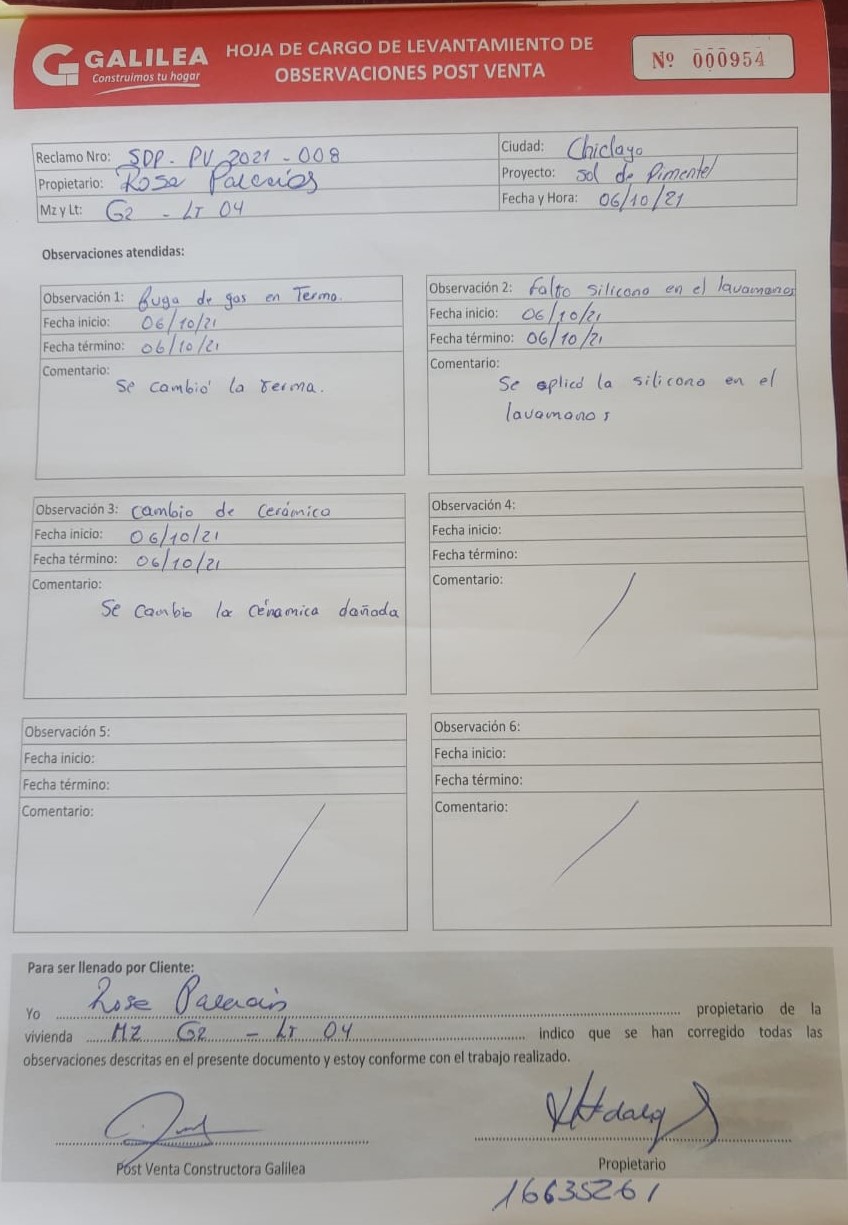 GALILEA
Construimos tu hogar
HOJA DE CARGO DE LEVANTAMIENTO DE
OBSERVACIONES POST VENTA
Nº 000954
Reclamo Nro: SDP-PV 2021-008
Propietario: Rosa Palacios
Mz y Lt: G2 - LT 04
Ciudad: Chiclayo
Proyecto: Sol de Pimentel
Fecha y Hora: 06/10/21
Observaciones atendidas:
Observación 1: Fuga de gas en Terma.
Fecha inicio: 06/10/21
Fecha término: 06/10/21
Comentario:
Se cambió la Terma.
Observación 2: Falto silicona en el lavamanos
Fecha inicio: 06/10/21
Fecha término: 06/10/21
Comentario:
Se aplicó la silicona en el
lavamanos
Observación 3: Cambio de Cerámico
Fecha inicio: 06/10/21
Fecha término: 06/10/21
Comentario:
Se Cambio la Céramica dañada
Observación 4:
Fecha inicio:
Fecha término:
Comentario:
Observación 5:
Fecha inicio:
Fecha término:
Comentario:
Observación 6:
Fecha inicio:
Fecha término:
Comentario:
Para ser llenado por Cliente:
Yo Rosa Palacios propietario de la
vivienda MZ G2 - LT 04 indico que se han corregido todas las
observaciones descritas en el presente documento y estoy conforme con el trabajo realizado.
Post Venta Constructora Galilea
Propietario
16635261